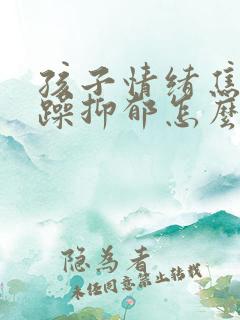 孩子情绪焦
躁抑郁怎么
隐为者
未经同意禁止转载